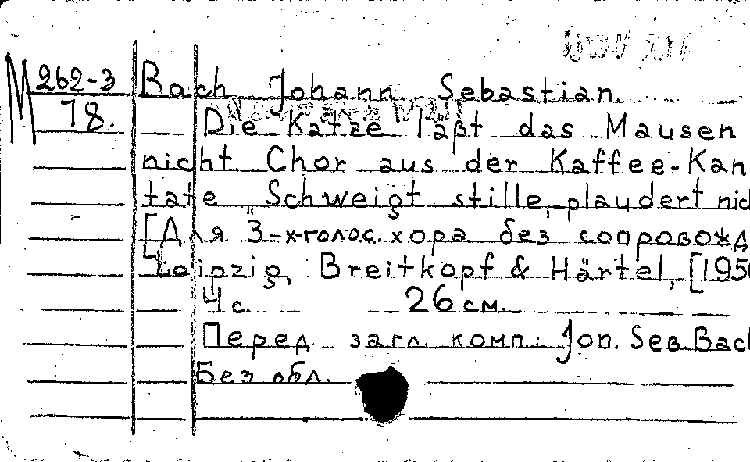 М 262-3 Bach Johann Sebastian.
78. Die Katze läßt das Mausen
nicht Chor aus der Kaffee-Kan
tate Schweigt stille, plaudert nic
[Для 3-х голос. хора без сопровожд
Leipzig, Breitkopf & Härtel, [195
4 с. 26 см.
Перед загл. комп.: Joh. Seb. Bach
Без обл.